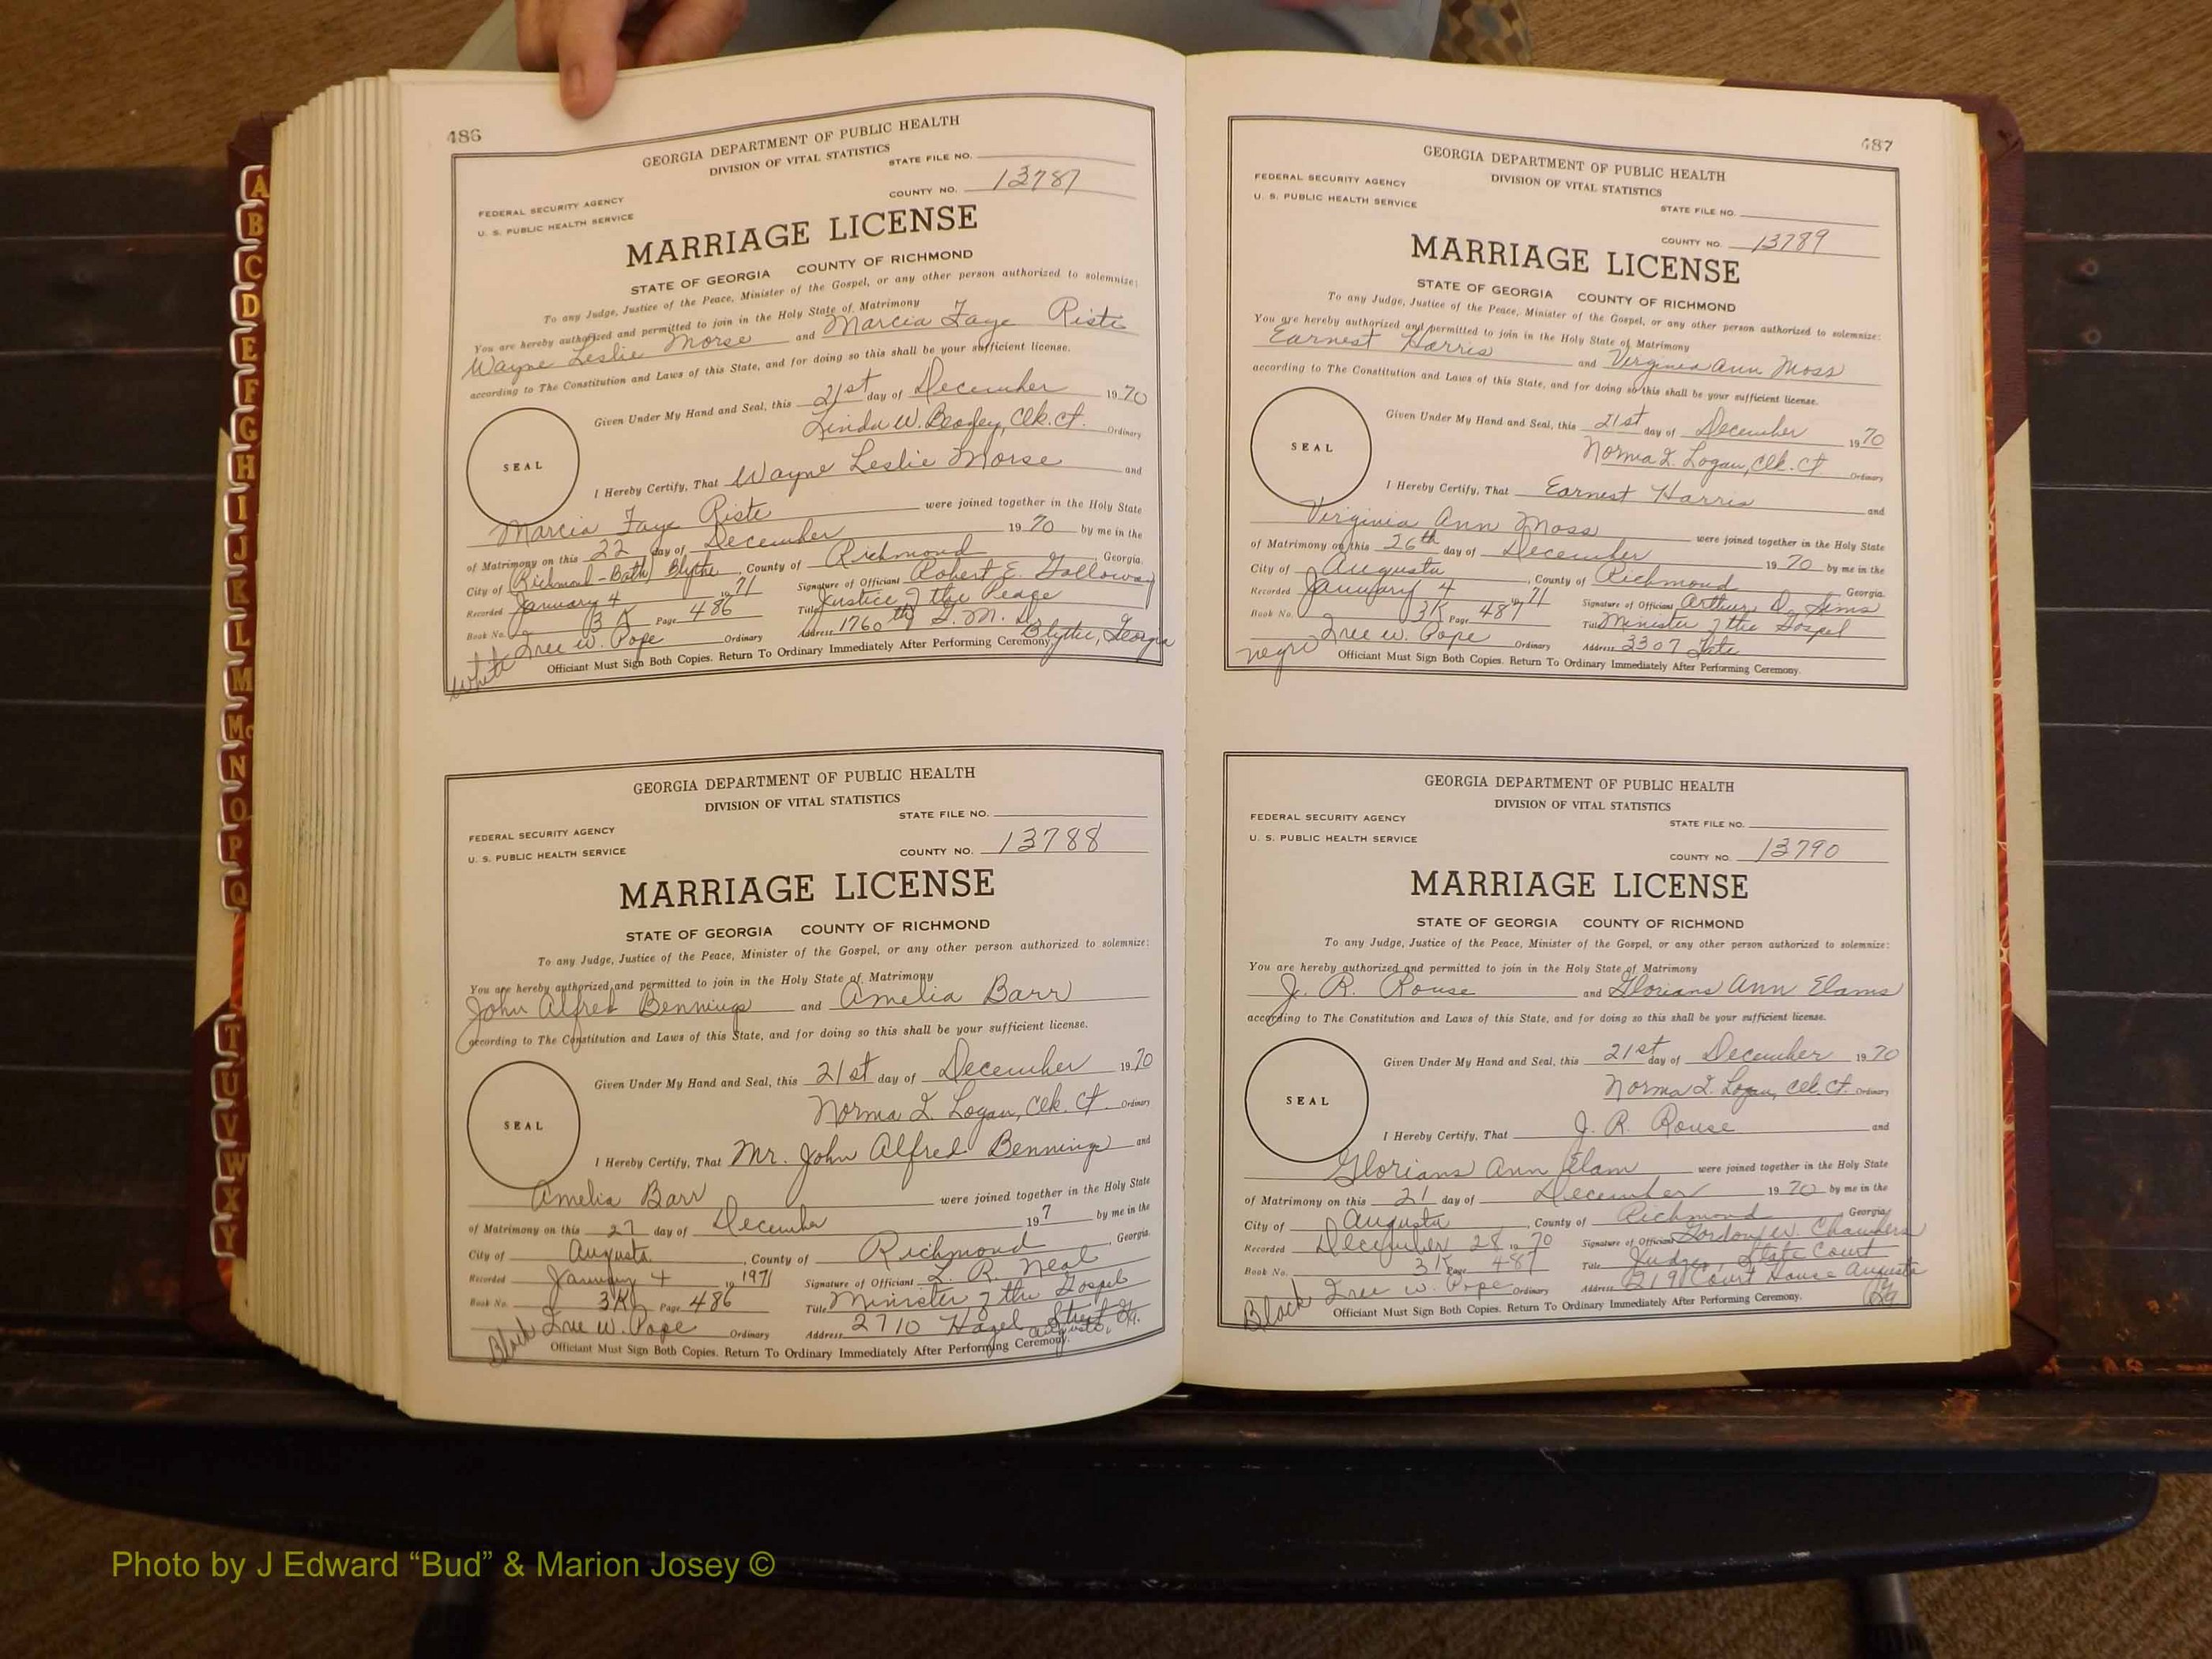 A
B
C
D
E
F
G
H
I
J
K
L
M
Mc
N
O
P
Q
T
U
V
W
X
Y
486
GEORGIA DEPARTMENT OF PUBLIC HEALTH
DIVISION OF VITAL STATISTICS
STATE FILE NO.
COUNTY NO. 13787
FEDERAL SECURITY AGENCY
U. S. PUBLIC HEALTH SERVICE
MARRIAGE LICENSE
STATE OF GEORGIA COUNTY OF RICHMOND
To any Judge, Justice of the Peace, Minister of the Gospel, or any other person authorized to solemnize:
You are hereby authorized and permitted to join in the Holy State of Matrimony
Wayne Leslie Morse and Marcia Faye Riste
according to The Constitution and Laws of this State, and for doing so this shall be your sufficient license.
Given Under My Hand and Seal, this 21st day of December 1970
Linda W. Clk. Ct. Ordinary
SEAL
I Hereby Certify, That Wayne Leslie Morse and
Marcia Faye Riste were joined together in the Holy State
of Matrimony on this 22 day of December 1970 by me in the
City of (Richmond-Bath) Blythe, County of Richmond, Georgia.
Recorded January 4 1971 Signature of Officiant Robert E. Galloway
Book No. 3K Page 486 Title Justice of the Peace
Iree W. Pope Ordinary Address 1760th G. M. D. Blythe, Georgia
White
Officiant Must Sign Both Copies. Return To Ordinary Immediately After Performing Ceremony.
GEORGIA DEPARTMENT OF PUBLIC HEALTH
DIVISION OF VITAL STATISTICS
STATE FILE NO.
FEDERAL SECURITY AGENCY
U. S. PUBLIC HEALTH SERVICE
COUNTY NO. 13788
MARRIAGE LICENSE
STATE OF GEORGIA COUNTY OF RICHMOND
To any Judge, Justice of the Peace, Minister of the Gospel, or any other person authorized to solemnize:
You are hereby authorized and permitted to join in the Holy State of Matrimony
John Alfred Bennings and Amelia Barr
according to The Constitution and Laws of this State, and for doing so this shall be your sufficient license.
Given Under My Hand and Seal, this 21st day of December 1970
Norma I. Logan, Clk. Ct. Ordinary
SEAL
I Hereby Certify, That Mr. John Alfred Bennings and
Amelia Barr were joined together in the Holy State
of Matrimony on this 27 day of December 197 by me in the
City of Augusta, County of Richmond, Georgia.
Recorded January 4 19 1971 Signature of Officiant L. R. Neal
Book No. 3K Page 486 Title Minister of the Gospel
Iree W. Pope Ordinary Address 2710 Hazel Street Augusta, Ga.
Black
Officiant Must Sign Both Copies. Return To Ordinary Immediately After Performing Ceremony.
487
GEORGIA DEPARTMENT OF PUBLIC HEALTH
DIVISION OF VITAL STATISTICS
FEDERAL SECURITY AGENCY
U. S. PUBLIC HEALTH SERVICE
STATE FILE NO.
COUNTY NO. 13789
MARRIAGE LICENSE
STATE OF GEORGIA COUNTY OF RICHMOND
To any Judge, Justice of the Peace, Minister of the Gospel, or any other person authorized to solemnize:
You are hereby authorized and permitted to join in the Holy State of Matrimony
Earnest Harris and Virginia Ann Moss
according to The Constitution and Laws of this State, and for doing so this shall be your sufficient license.
Given Under My Hand and Seal, this 21st day of December 1970
Norma I. Logan, Clk. Ct Ordinary
SEAL
I Hereby Certify, That Earnest Harris and
Virginia Ann Moss were joined together in the Holy State
of Matrimony on this 26th day of December 1970 by me in the
City of Augusta, County of Richmond Georgia.
Recorded January 4 1971 Signature of Officiant Arthur D. Sims
Book No. 3K Page 487 Title Minister of the Gospel
Iree W. Pope Ordinary Address 3307 Tate
negro
Officiant Must Sign Both Copies. Return To Ordinary Immediately After Performing Ceremony.
GEORGIA DEPARTMENT OF PUBLIC HEALTH
DIVISION OF VITAL STATISTICS
FEDERAL SECURITY AGENCY
U. S. PUBLIC HEALTH SERVICE
STATE FILE NO.
COUNTY NO. 13790
MARRIAGE LICENSE
STATE OF GEORGIA COUNTY OF RICHMOND
To any Judge, Justice of the Peace, Minister of the Gospel, or any other person authorized to solemnize:
You are hereby authorized and permitted to join in the Holy State of Matrimony
J. R. Rouse and Glorians Ann Elams
according to The Constitution and Laws of this State, and for doing so this shall be your sufficient license.
Given Under My Hand and Seal, this 21st day of December 1970
Norma I. Logan, Clk. Ct. Ordinary
SEAL
I Hereby Certify, That J. R. Rouse and
Glorians Ann Elam were joined together in the Holy State
of Matrimony on this 21 day of December 1970 by me in the
City of Augusta, County of Richmond, Georgia
Recorded December 28 1970 Signature of Officiant Gordon W. Chambers
Book No. 3K Page 487 Title Judge, State Court
Iree W. Pope Ordinary Address 219 Court House Augusta Ga
Black
Officiant Must Sign Both Copies. Return To Ordinary Immediately After Performing Ceremony.
Photo by J Edward “Bud” & Marion Josey ©